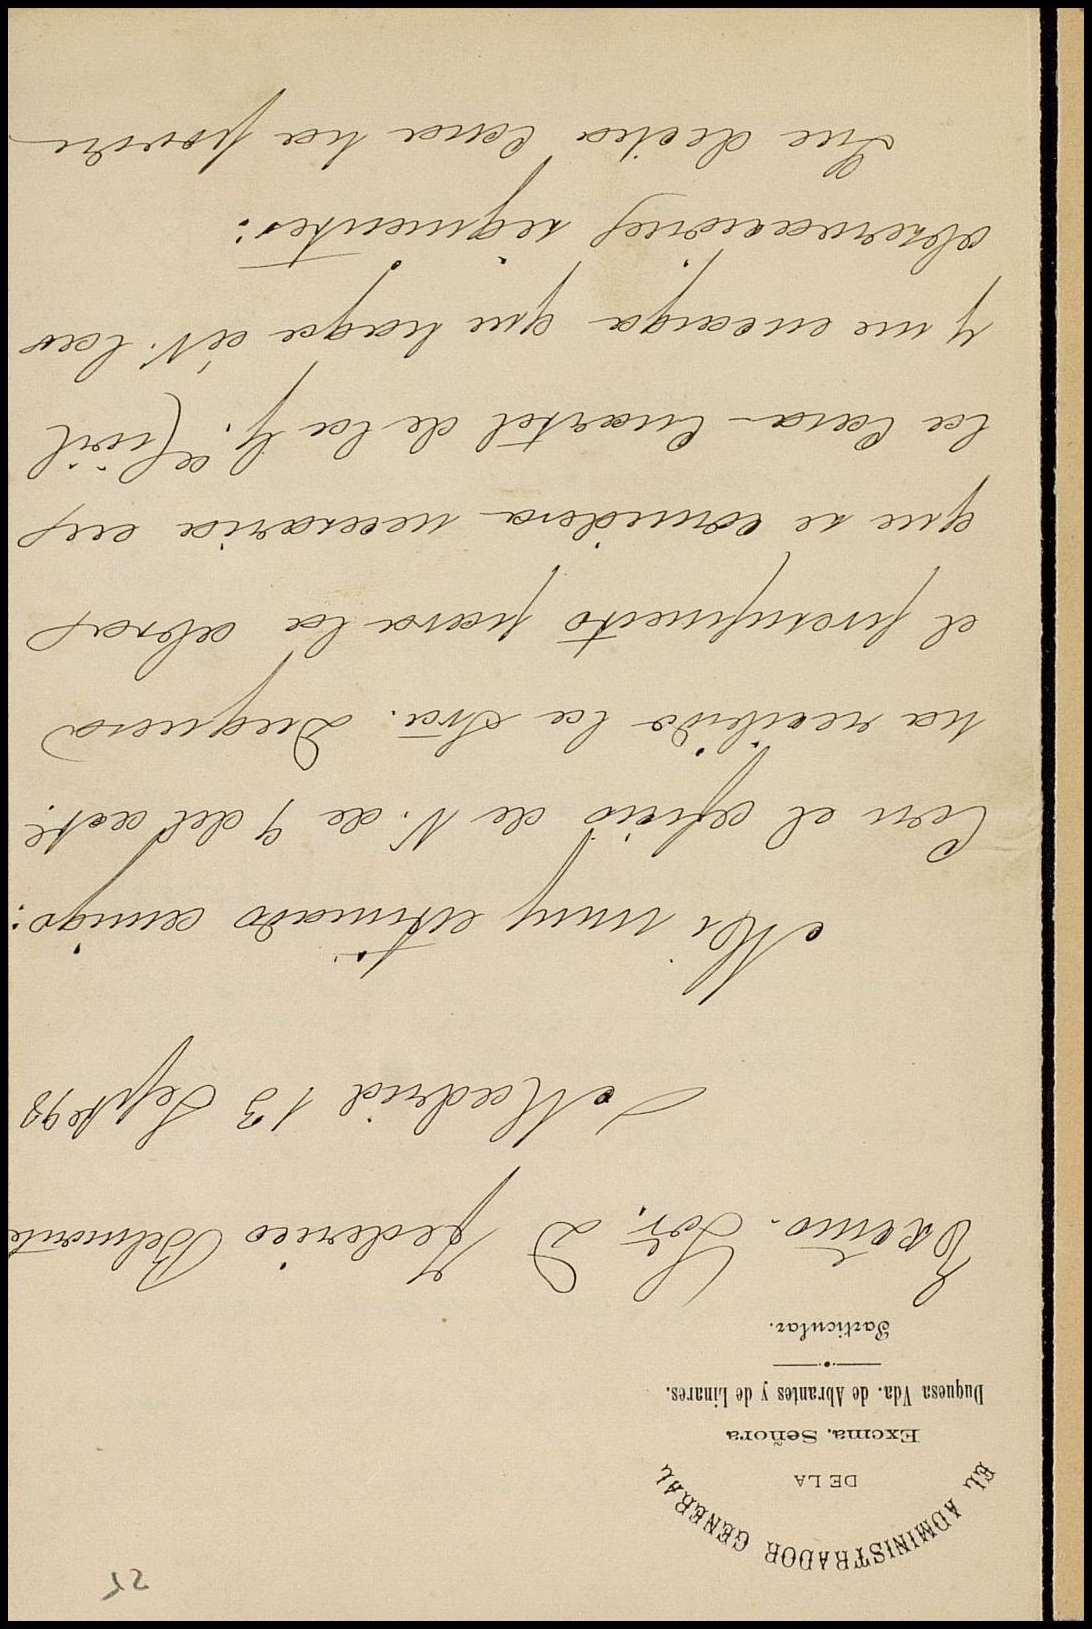 25
EL ADMINISTRADOR GENERAL
DE LA
Excma. Señora
Duquesa Vda. de Abrantes y de Linares.
Particular.
Excmo. Sor. D Federico Belmonte
Madrid 13 Septe 98
Mi muy estimado amigo:
Con el oficio de V. de 9 del actl.
ha recibido la Sra. Duquesa
el presupuesto para la obras
que se considera necesaria en
la Casa-Cuartel de la G. Civil
y me encarga que haga á V. las
observaciones siguientes:
Que dicha Casa ha